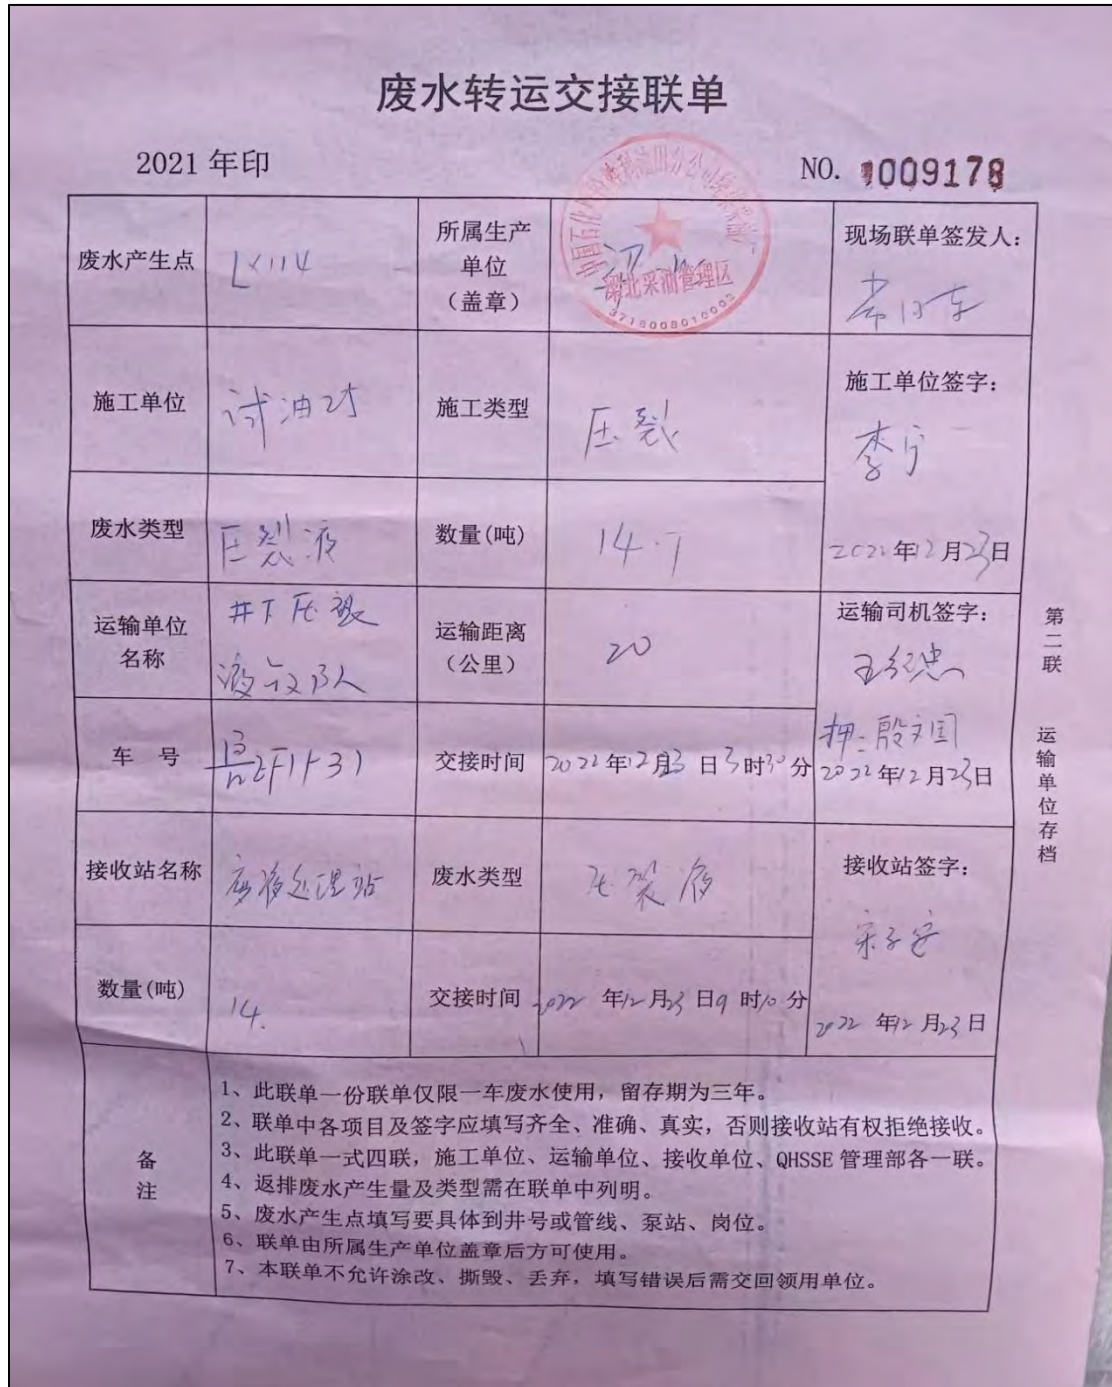 废水转运交接联单
2021 年印
NO. 1009178
废水产生点
所属生产
单位
(盖章)
采油管理区
3718008010003
现场联单签发人:
施工单位
试油
施工类型
压裂
施工单位签字:
李宁
废水类型
压裂液
数量(吨)
14.
2022年12月23日
运输单位
名称
井下压裂
运输距离
(公里)
20
运输司机签字:
押:殷文国
2022年12月23日
车 号
交接时间
2022年12月23日3时30分
接收站名称
废液处理站
废水类型
压裂液
接收站签字:
数量(吨)
14.
交接时间
2022 年12月23日9 时10分
2022 年12月23日
第二联 运输单位存档
备注
1、此联单一份联单仅限一车废水使用,留存期为三年。
2、联单中各项目及签字应填写齐全、准确、真实,否则接收站有权拒绝接收。
3、此联单一式四联,施工单位、运输单位、接收单位、QHSSE 管理部各一联。
4、返排废水产生量及类型需在联单中列明。
5、废水产生点填写要具体到井号或管线、泵站、岗位。
6、联单由所属生产单位盖章后方可使用。
7、本联单不允许涂改、撕毁、丢弃,填写错误后需交回领用单位。